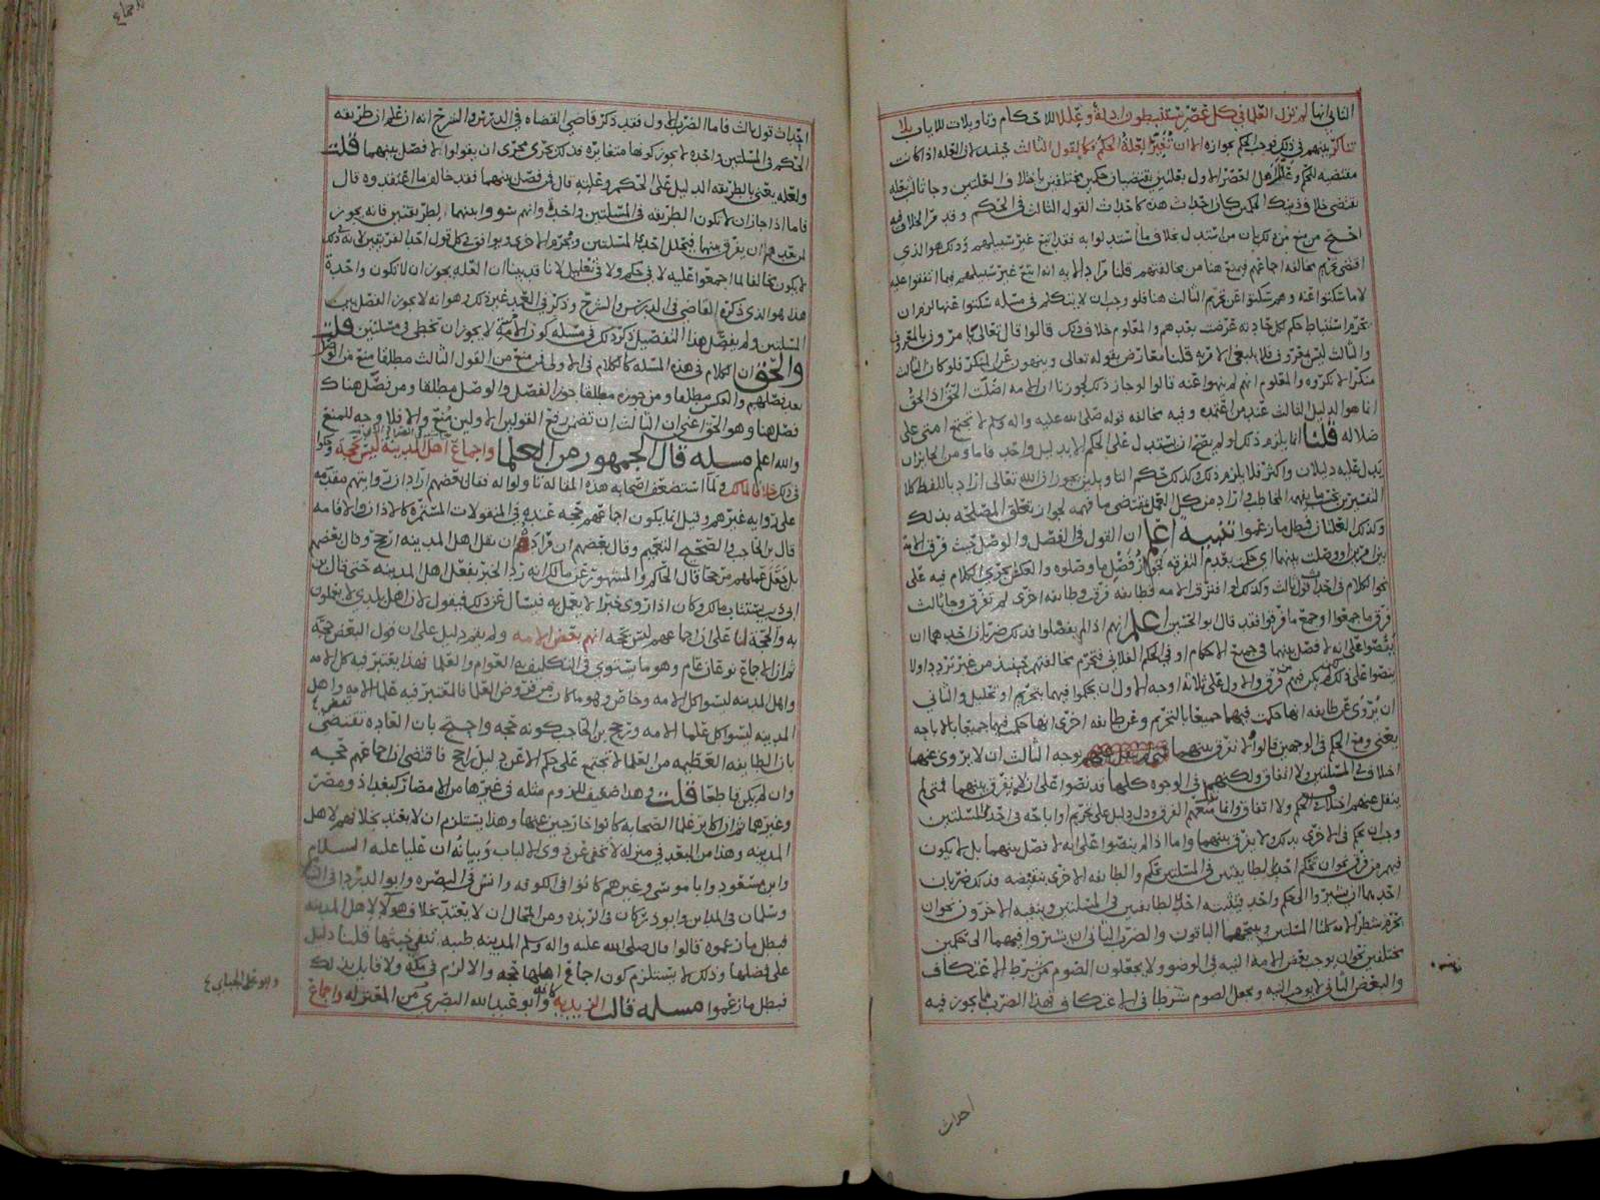 الثاني انها لم تزل العلماء في كل عصر يستنبطون ادلة وعللا للاحكام وتاويلات للايات بلا
تناكر بينهم في ذلك فوجب الحكم بجوازه الا ان تغير العلة الحكم فكالقول الثالث حينئذ لان العلة اذا كانت
مقتضيه للحكم وعلل اهل العصر الاول بعلتين يقتضيان حكمين مختلفين باختلاف العلتين وجا ثالث بعله
تقتضي خلاف ذينك الحكمين كان احداث هذه كاحداث القول الثالث في الحكم وقد مر الخلاف فيه
احتج من منع من ذلك بان من استدل بخلاف ما استدلوا به فقد اتبع غير سبيلهم وذلك هو الذي
اقتضى تحريم مخالفة اجماعهم فيمنع هنا من مخالفتهم قلنا مراد الايه انه اتبع غير سبيلهم فيما اتفقوا عليه
لا ما سكتوا عنه وهم سكتوا عن تحريم الثالث هنا فلو وجب ان لا يتكلم في مسله سكتوا عنها لزم ان
يحرم استنباط حكم كل حادثه عرضت بعدهم والمعلوم خلاف ذلك قالوا قال تعالى يامرون بالمعروف
والثالث ليس بمعروف فلا يبقى الا مريه قلنا معارض بقوله تعالى وينهون عن المنكر فلو كان الثالث
منكرا لانكروه والمعلوم انهم لم ينهوا عنه قالوا لو جاز ذلك لجوزنا ان الامه اضلت الحق اذ الحق
انما هو الدليل الثالث عند من اعتمده وفيه مخالفه قوله صلى الله عليه واله وسلم لا تجتمع امتي على
ضلاله قلنا انما يلزم ذلك لو لم يصح ان يستدل على الحكم الا بدليل واحد فاما ومن الجايز ان
يدل عليه دليلان واكثر فلا يلزم ذلك وكذلك حكم التاويلين يجوز ان الله تعالى اراد باللفظ كلا
وكذلك العلتان فبطل ما زعموا تنبيه اعلم ان القول في الفصل والوصل حيث فرقت الامة
بين امرين او وصلت بينهما اي حكمت بعدم التفرقه نحو فصل ما وصلوه والعكس يجري الكلام فيه على
نحو الكلام في احداث قول ثالث وكذلك لو افترقت الامه فطايفه فرقت وطايفه اخرى لم تفرق وجا ثالث
فرق ما جمعوا او جمع ما فرقوا فقد قال ابو الحسين اعلم انهم اذا لم يفصلوا فذلك ضربان احدهما ان
ينصوا على انه لا فصل بينهما في جميع الاحكام او في الحكم الفلاني فتحرم مخالفتهم حينئذ من غير تردد او لا
ينصوا على ذلك لكن لم يكن فيهم من فرق والاول على ثلاثة اوجه الاول ان يحكموا فيهما بتحريم او تحليل والثاني
ان يروى عن طايفه انها حكمت فيهما جميعا بالتحريم وعن طايفه اخرى انها حكمت فيهما جميعا بالاباحه
يعني ومنع الحكم في الوجهين قالوا لا نفرق بينهما بوجه الثالث ان لا يروى عنها
اختلاف في المسلتين ولا اتفاق ولكنهم في الوجوه كلها قد نصوا على ان لا يفرق بينهما فمتى لم
ينقل عنهم اختلاف في الحكم ولا اتفاق وانما نقل منعهم الفرق ودل دليل على تحريم او اباحه في احدى المسلتين
وجب ان نحكم في الاخرى بذلك ولا يفرق بينهما واما اذا لم ينصوا على انه لا فصل بينهما بل لا يكون
فيهم من فرق نحو ان تحكم احدى الطايفتين في المسلتين بحكم والطايفه الاخرى بنقيضه فذلك ضربان
احدهما ان يشيروا الى حكم واحد فيثبته احدى الطايفتين في المسلتين وينفيه الاخرون نحو ان
يحرم شطر الامه كلتا المسلتين ويبيحهما الباقون والضرب الثاني ان يشيروا فيهما الى حكمين
مختلفين نحو ان يوجب بعض الامه النيه في الوضو ولا يجعلون الصوم من شرط الاعتكاف
والبعض الثاني لا يوجب النيه ويجعل الصوم شرطا في الاعتكاف فهذا الضرب مما يجوز فيه
احداث
احداث قول ثالث فاما الضرب الاول فقد ذكر قاضي القضاه في الدرس والشرح انه ان علم ان طريقه
الحكم في المسلتين واحده لا يجوز كونها متغايره فذلك يجري مجرى ان يقولوا لا فصل بينهما قلت
ولعله يعني بالطريقه الدليل على الحكم وعلته قال فمن فصل بينهما فقد خالف ما اعتقدوه قال
فاما اذا جاز ان لا تكون الطريقه في المسلتين واحده وانهم سووا بينهما لطريقتين فانه يجوز
لمن بعدهم ان يفرق بينهما فيحلل احدى المسلتين ويحرم الاخرى ويوافق في كل قول احد الفريقين لانه بذلك
لا يكون مخالفا لما اجمعوا عليه لا في حكم ولا في تعليل لانا قد بينا ان العله يجوز ان لا تكون واحدة
هذا هو الذي ذكره القاضي في الدرس والشرح وذكر في العمد غير ذلك وهو انه لا يجوز الفصل بين
المسلتين ولم يفصل هذا التفصيل ذكر ذلك في مسله كون الامه لا يجوز ان تخطي في مسلتين قلت
والحق ان الكلام في هذه المسله كالكلام في الاولى فمن منع من القول الثالث مطلقا منع من الوصل
بعد فصلهم والعكس مطلقا ومن جوزه مطلقا جوز الفصل والوصل مطلقا ومن فصل هناك
فصل هنا وهو الحق اعني ان الثالث ان تضمن رفع القولين الاولين منع والا فلا وجه للمنع
والله اعلم مسله قال الجمهور من العلما واجماع اهل المدينه ليس بحجه وذكروا
في ذلك خلافا لمالك ولما استضعف اصحابه هذه المقاله تاولوا له فقال بعضهم اراد ان روايتهم مقدمه
على روايه غيرهم وقيل انما يكون اجماعهم حجه عنده في المنقولات المستمره كالاذان والاقامه
قال بن الحاجب والصحيح التعميم وقال بعضهم ان مراده ان نقل اهل المدينه ارجح وقال بعضهم
بل يجعل عملهم مرجحا قال الحاكم والمشهور عن مالك انه رد الخبر بفعل اهل المدينه حتى قال بن
ابي ذيب يستتاب مالك وكان اذا روى خبرا لا يعمل به فيسال عن ذلك فيقول لان اهل بلدي لا يعملون
به والحجه لنا على ان اجماعهم ليس بحجه انهم بعض الامه ولم يقم دليل على ان قول البعض حجه
ثم ان الاجماع نوعان عام وهو ما يستوي في التكليف به العوام والعلما فهذا يعتبر فيه كل الامه
واهل المدينه ليسوا كل الامه وخاص وهو ما كان من فروض العلما فالمعتبر فيه علما الامه واهل
المدينه ليسوا كل علما الامه ورجح بن الحاجب كونه حجه واحتج بان العاده تقتضي
بان الطايفه العظيمه من العلما لا تجتمع على حكم الا عن دليل راجح فاقتضى ان اجماعهم حجه
وان لم يكن قاطعا قلت وهذا ضعيف للزوم مثله في غيرها من الامصار كبغداذ ومصر
وغيرهما ثم ان اكابر علما الصحابه كانوا خارجين عنها وهذا يستلزم ان لا يعتد بخلافهم لاهل
المدينه وهذا من البعد في منزله لا تخفى عن ذوي الالباب وبيانه ان عليا عليه السلام
وابن مسعود وابا موسى وغيرهم كانوا في الكوفه وانس في البصره وابو الدردا في الشام
وسلمان في المداين وابو ذر كان في الربذه ومن المحال ان لا يعتد بخلاف هولا لاهل المدينه
فبطل ما زعموه قالوا قال صلى الله عليه واله وسلم المدينه طيبه تنفي خبثها قلنا دليل
على فضلها وذلك لا يستلزم كون اجماع اهلها حجه والا لزم في مكه ولا قايل بذلك
فبطل ما زعموا مسله قالت الزيديه وابو عبد الله البصري من المعتزله واجماع
وابو علي الجبائي